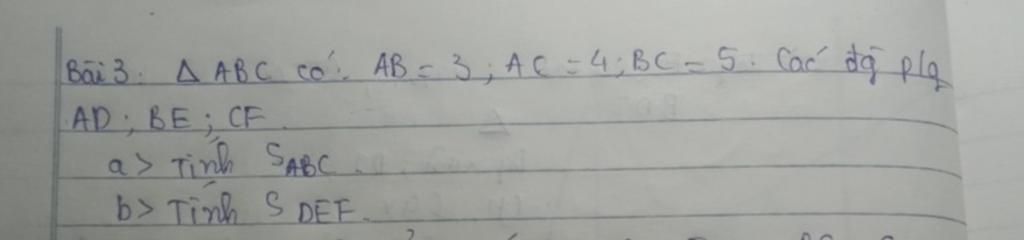 Bài 3: Δ ABC có: AB = 3; AC = 4; BC = 5. Các đg plg
AD; BE; CF.
a> Tính SABC
b> Tính S DEF.